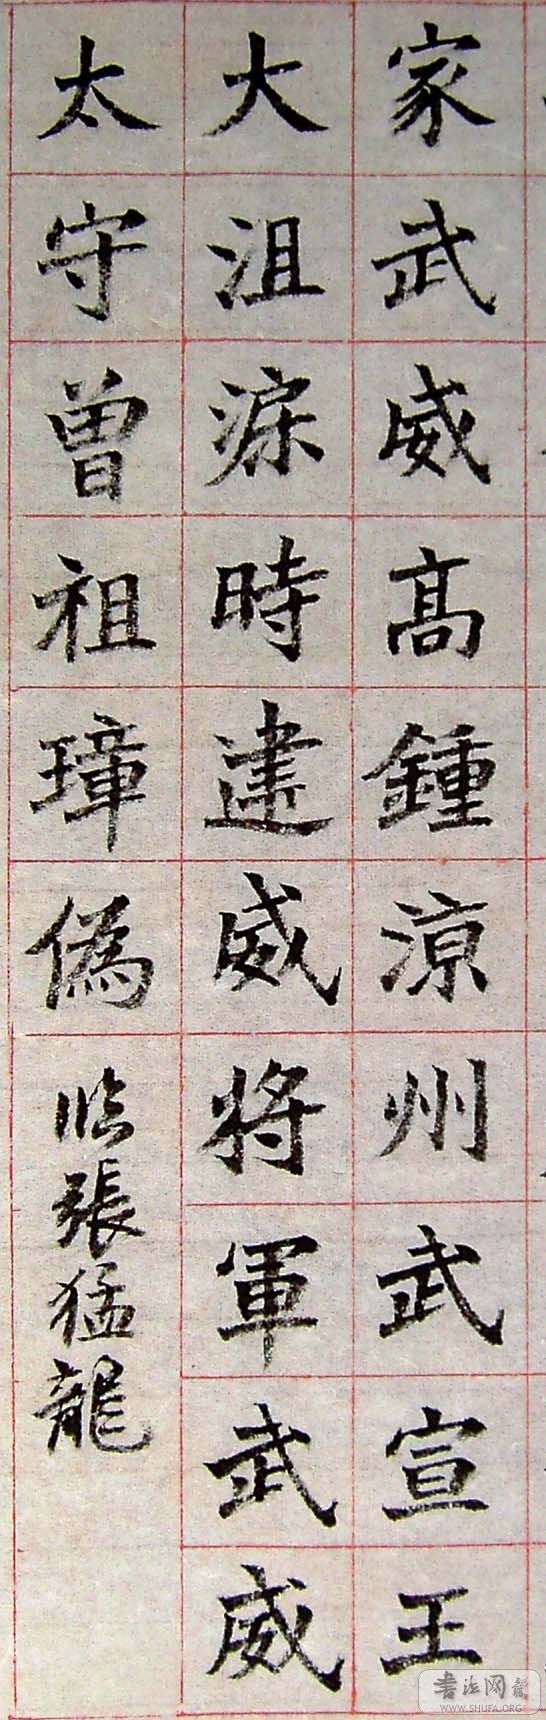 家武威高鍾涼州武宣王
大沮渠時建威将軍武威
太守曾祖璋偽
临張猛龍
書法网
WWW.SHUFA.ORG